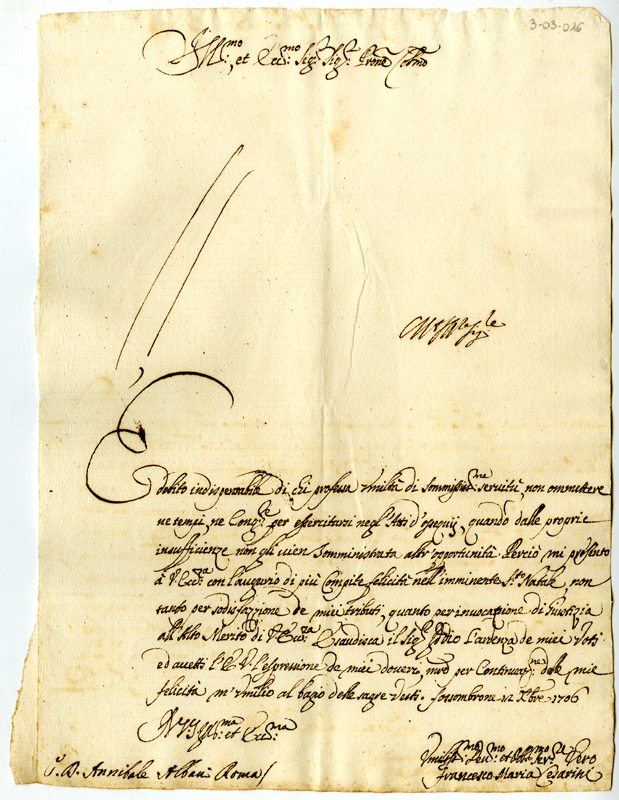 3-03-016
Ill:mo et Ecc:mo Sig:r Sig:r Prone Colmo
È debito indispensabile di chi professa vmiltà di sommissi.ma seruitù, non ommettere
ne tempi, ne Cong.re per essercitarsi negl'Atti d'ossequij, quando dalle proprie
insufficienze non gli uien somministrata altr'opportunità. Perciò mi presento
à V. Ecc.za con l'augurio di più Compite felicità nell'imminente S.to Natale, non
tanto per sodisfazzione de miei tributi, quanto per inuocazione di Giustizia
all'Alto Merito di V. Ecc.za Esaudisca il Sig.r Iddio l'ardenza de miei Voti
ed accetti l'E. V. l'espressione de miei doueri, mentre per Continuaz.ne delle mie
felicità m'vmilio al bagio delle sagre Vesti. Fossombrone 12 Xbre 1706
Di V. S. Ill:ma et Ecc:ma
Vmiliss:mo Deu:mo et Oblig:mo Ser:re Vero
Francesco Maria Cedarini
D. Annibale Albani Roma